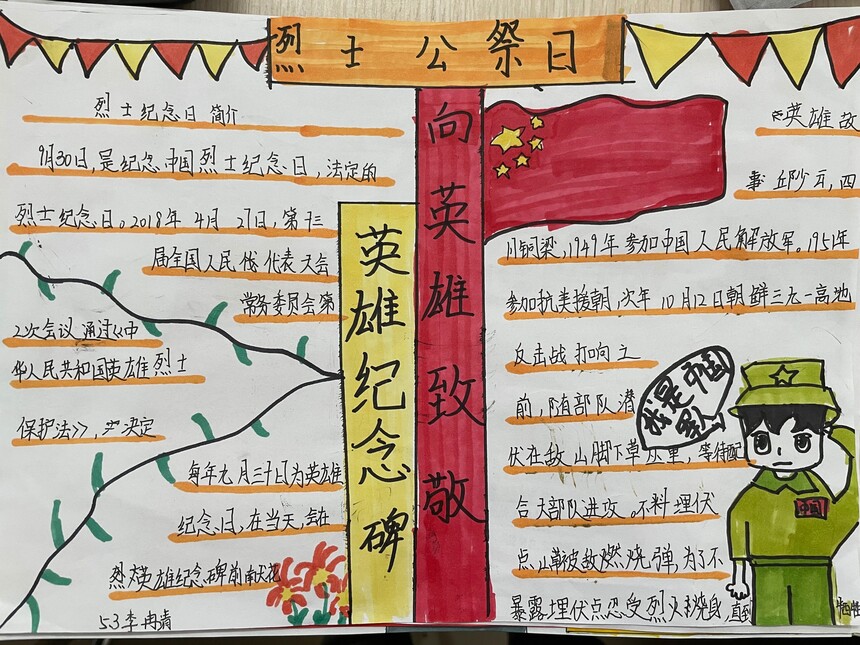 烈士公祭日
向英雄致敬
英雄纪念碑
烈士纪念日 简介
9月30日,是纪念中国烈士纪念日,法定的
烈士纪念日。2018年4月27日,第十三
届全国人民代代表大会
常务委员会第
2次会议通过《中
华人民共和国英雄烈士
保护法》,决定
每年九月三十日为英雄
纪念日,在当天,会在
英雄纪念碑前献花
5.3李冉
英雄故
事 邱少云,四
川铜梁,1949年参加中国人民解放军。1951年
参加抗美援朝,次年10月12日朝鲜三九一高地
反击战 打响之
前,随部队潜
伏在敌山脚下草丛里,等待配
合大部队进攻。不料埋伏
点山草被敌燃烧弹,为了不
暴露埋伏点忍受烈火烧身,直到
牺牲
我是中国
军人
中国